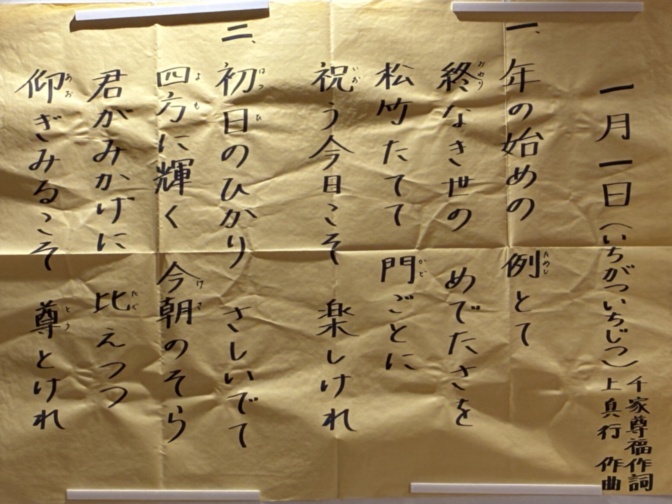 一月一日(いちがついちじつ) 千家尊福作詞
上真行 作曲
一、年の始めの 例とて
終なき世の めでたさを
松竹たてて 門ごとに
祝う今日こそ 楽しけれ
二、初日のひかり さしいでて
四方に輝く 今朝のそら
君がみかげに 比えつつ
仰ぎみるこそ 尊とけれ